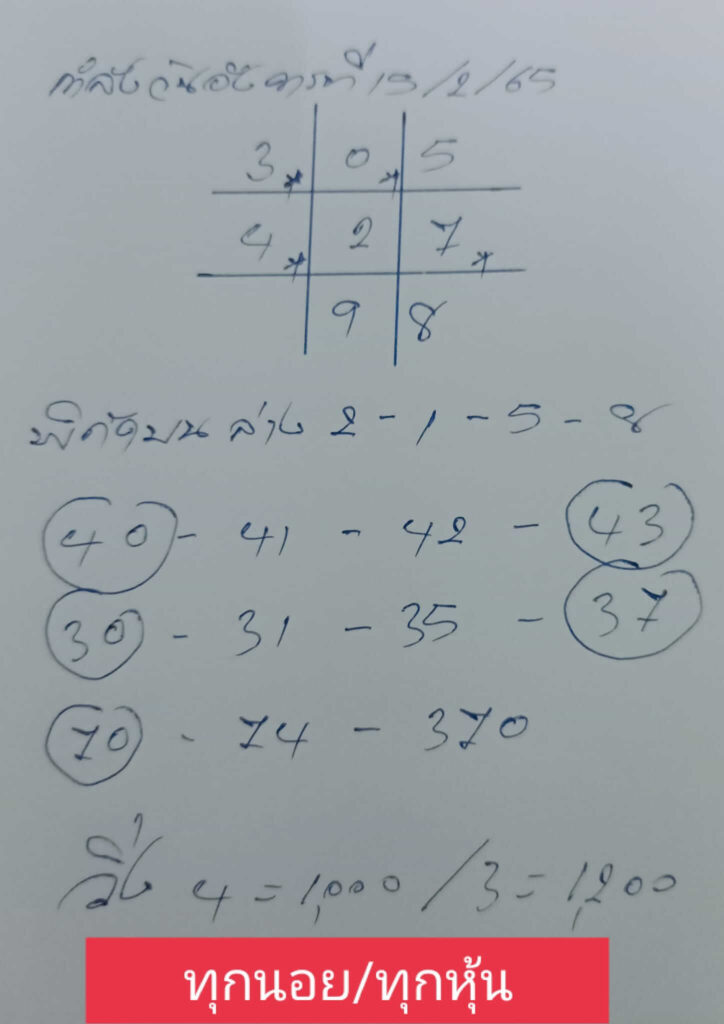 กำลังวันอังคารที่ 15/2/65
3 0 5
4 2 7
9 8
พิกัดบน ล่าง 2 - 1 - 5 - 8
40 - 41 - 42 - 43
30 - 31 - 35 - 37
70 - 74 - 370
วิ่ง 4 = 1,000 / 3 = 1,200
ทุกนอย/ทุกหุ้น